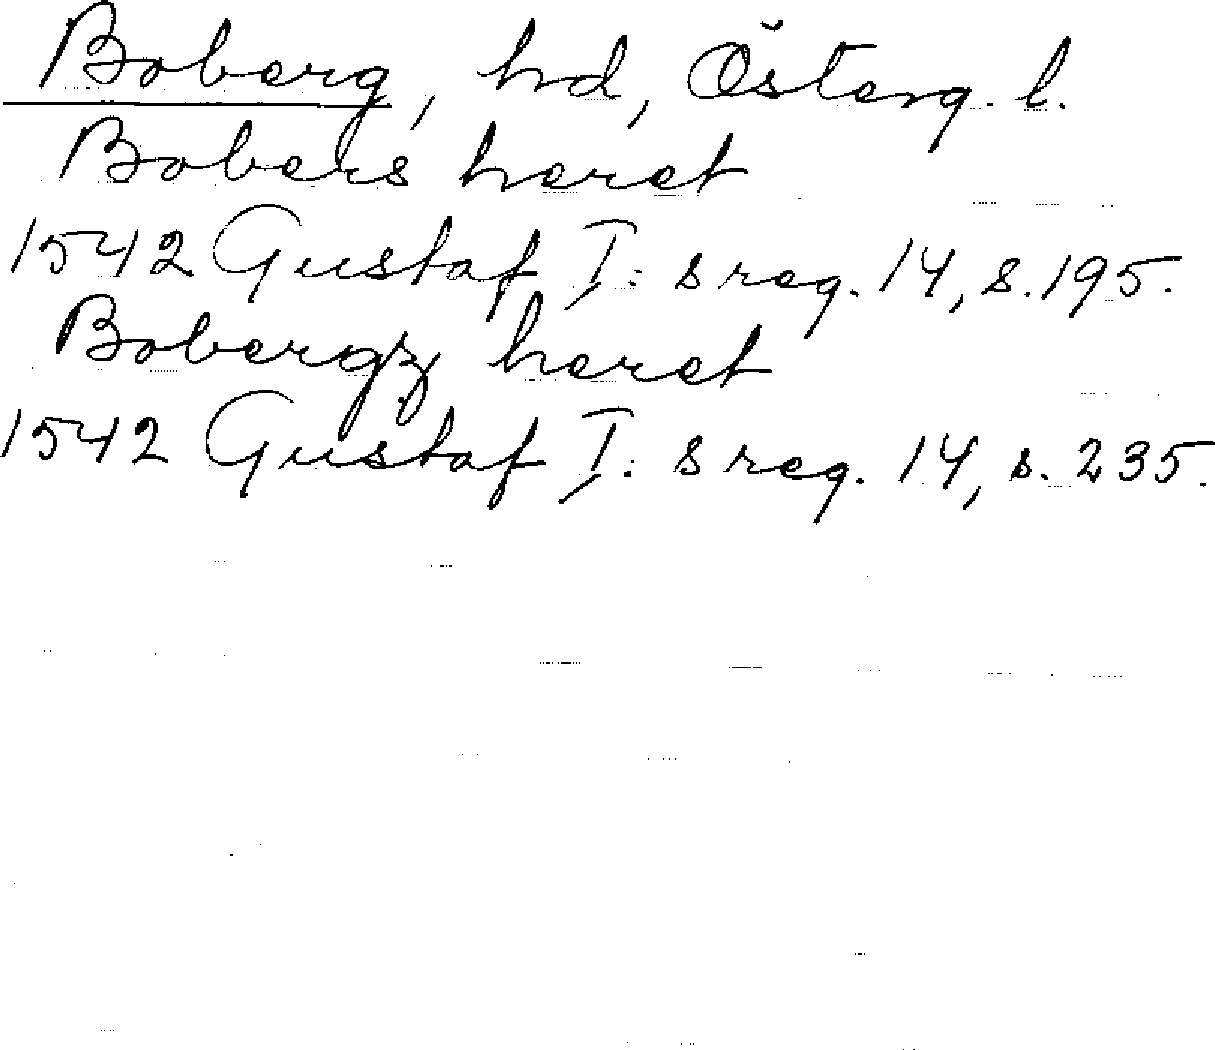 Boberg, hd, Österg. l.
Bobers heret
1542 Gustaf I: s reg. 14, s. 195.
Bobergz heret
1542 Gustaf I: s reg. 14, s. 235.